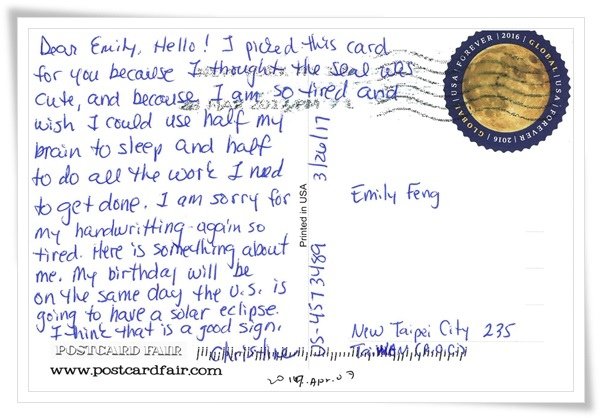 Dear Emily, Hello! I picked this card
for you because I thought the seal was
cute, and because I am so tired and
wish I could use half my
brain to sleep and half
to do all the work I need
to get done. I am sorry for
my handwritting again so
tired. Here is something about
me. My birthday will be
on the same day the U.S. is
going to have a solar eclipse.
I think that is a good sign.
Christine
POSTCARD FAIR
www.postcardfair.com
Printed in USA
US-4573489 3/26/17
GLOBAL | USA | FOREVER | 2016 | GLOBAL | USA | FOREVER | 2016
Emily Feng
New Taipei City 235
Taiwan
Apr. 07